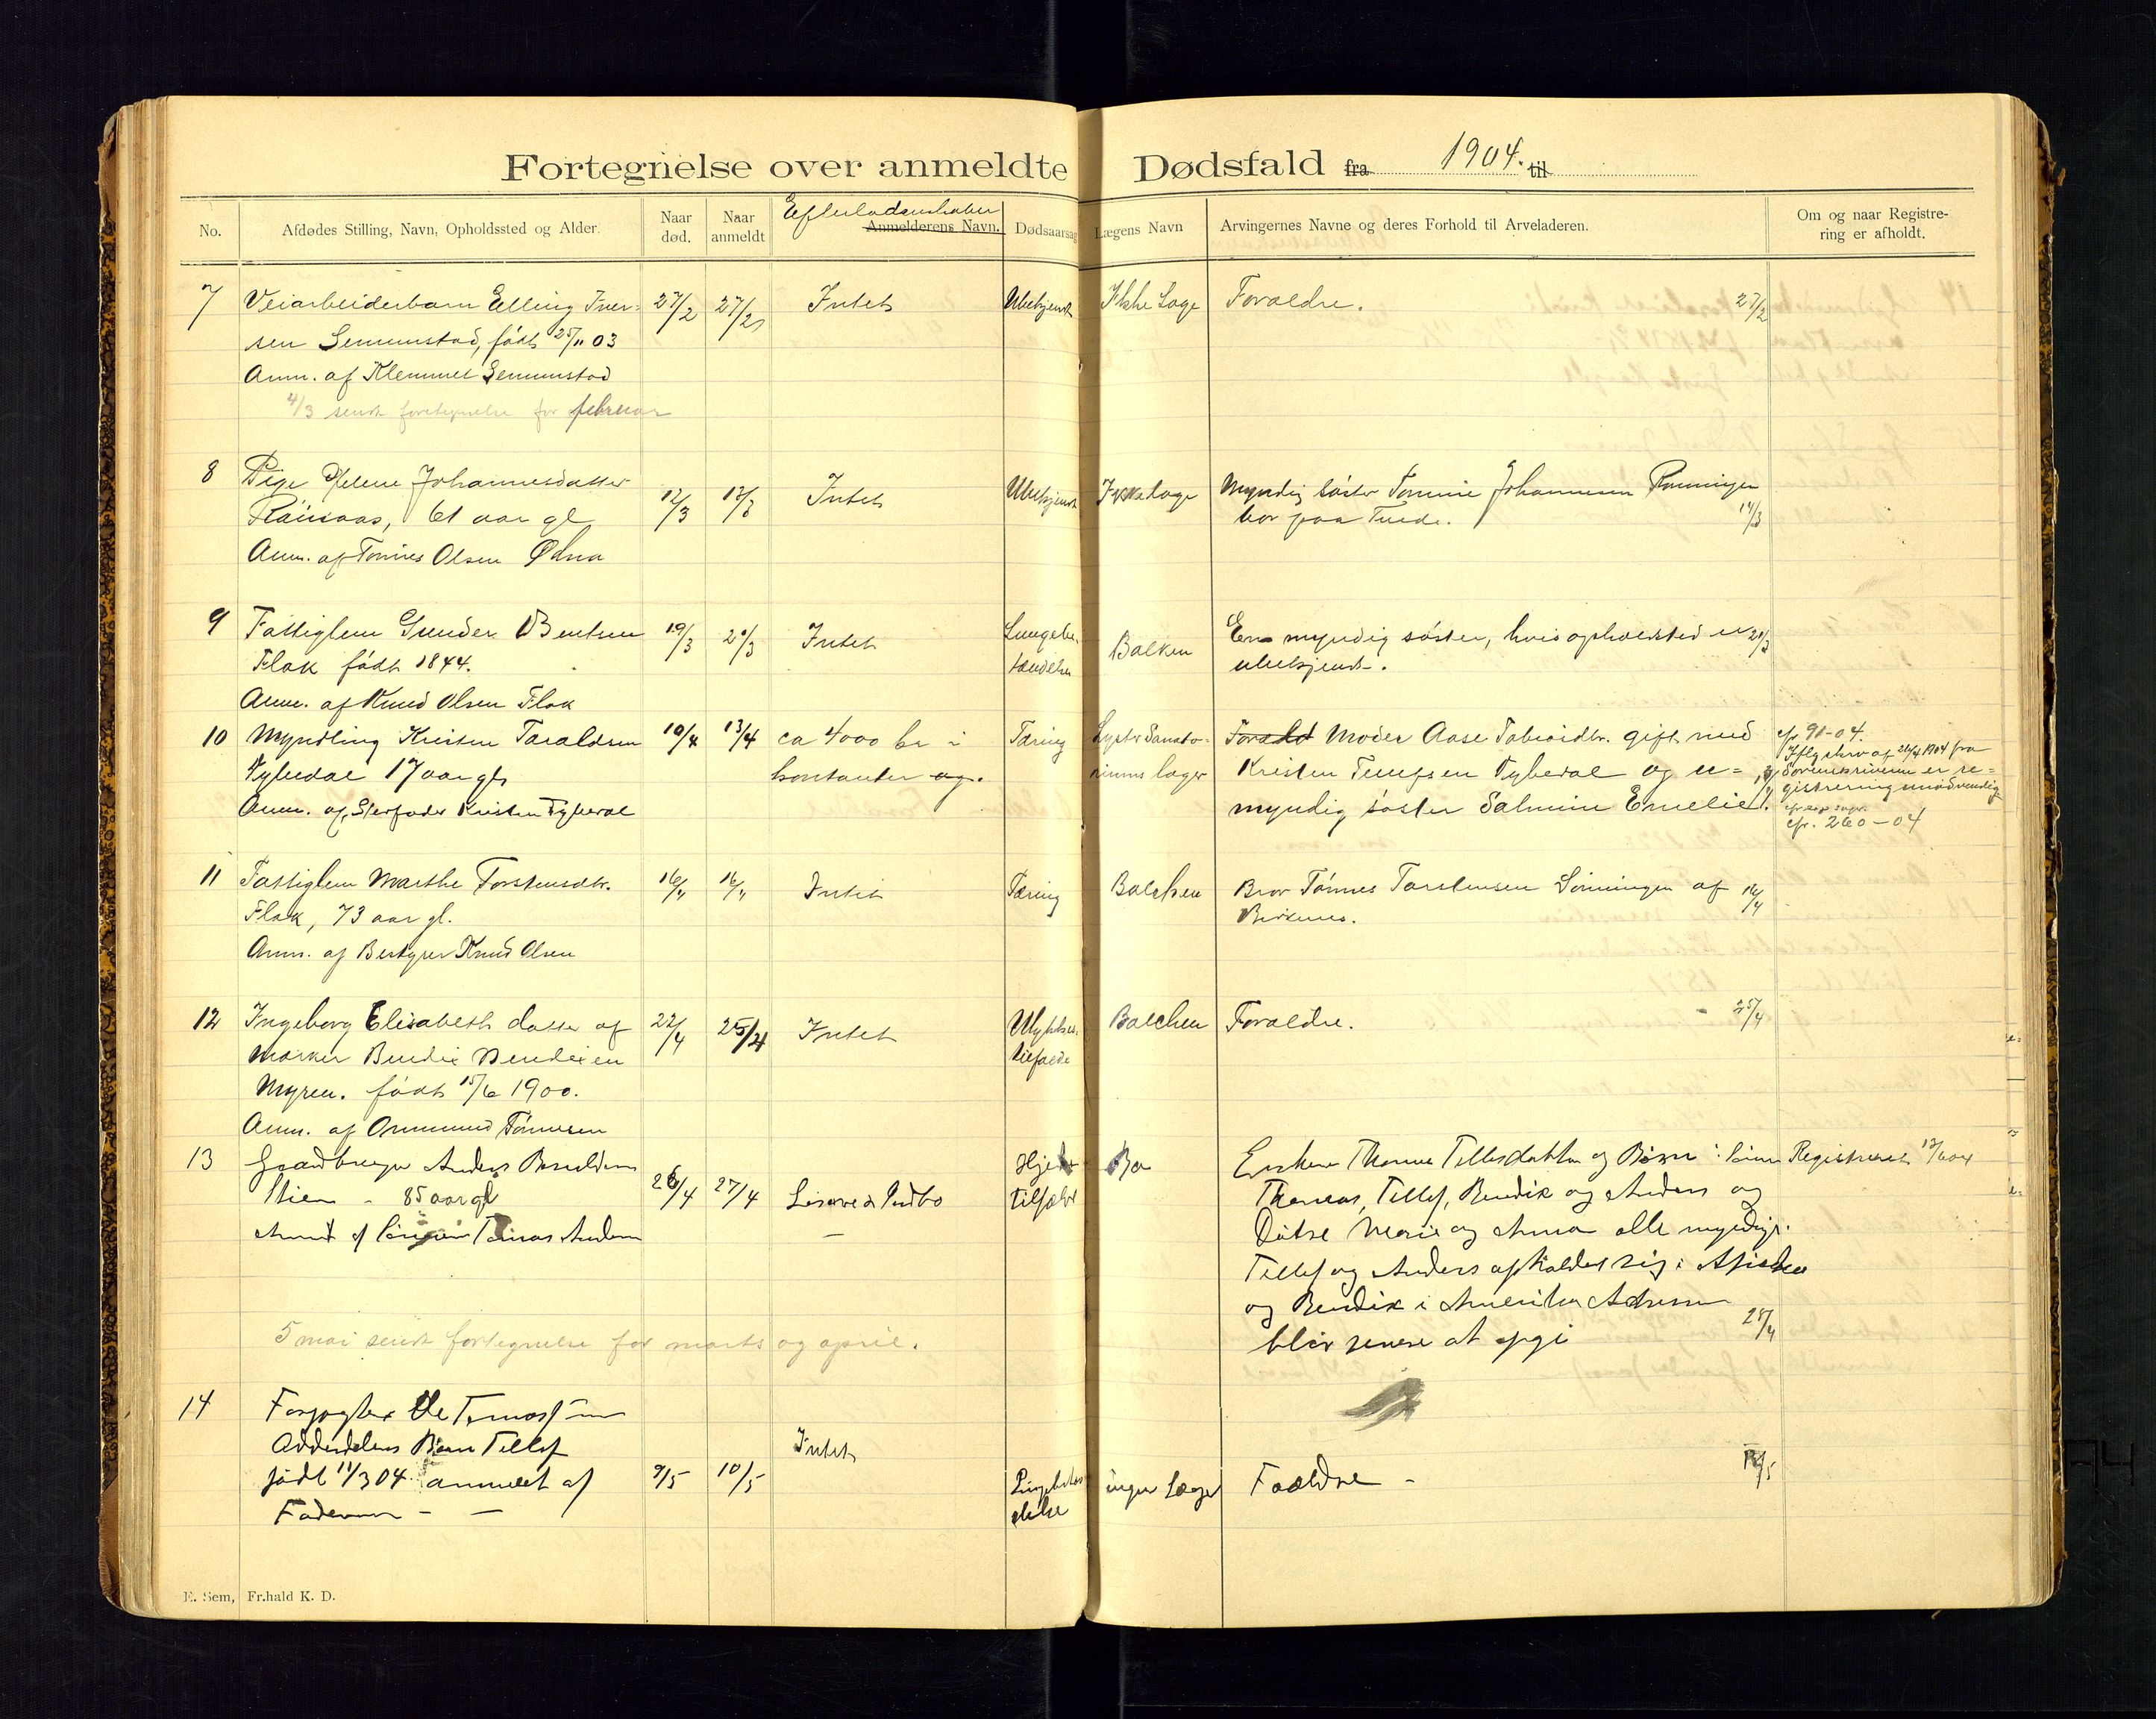 Fortegnelse over anmeldte Dødsfald fra 1904. til
No.
Afdødes Stilling, Navn, Opholdssted og Alder.
Naar død.
Naar anmeldt
Efterladenskaber
Anmelderens Navn.
Dødsaarsag
Lægens Navn
Arvingernes Navne og deres Forhold til Arveladeren.
Om og naar Registre-
ring er afholdt.
7 Veiarbeiderbarn Elling Iver- 27/2 27/2 Intet Ubekjendt Ikke Læge Forældre. 27/2
sen Senumstad, født 25/11 03
Anm. af Klemmet Senumstad
4/3 sendt fortegnelse for februar
8 Pige Helene Johannesdatter 12/3 13/3 Intet Ubekjendt Ikke læge Myndig søster Tomine Johannesen
61 aar gl bor paa 14/3
Anm. af Tønnes Olsen
9 Fattiglem Gunder Bentsen 19/3 20/3 Intet Lungebe- Balken En myndig søster, hvis opholdsted er 21/3
Flak født 1844. tændelse ubekjendt.
Anm. af Knud Olsen Flak
10 Myndling Kristen Taraldsen 10/4 13/4 ca 4000 kr i Tæring Lyster Sanato- Foræld Moder Aase gift med cfr 91-04.
17 aar gl. kontanter og. riums læge Kristen og u- Iflg skrv af 26/4 1904 fra
Anm. af Sterfader Kristen myndig søster Salmine Emelie. Sorenskriveren er re-
gistrering unødvendig
cfr. 260-04
11 Fattiglem Marthe Torstensdtr. 16/4 16/4 Intet Tæring Balchen Bror Tønnes Tarstensen af 16/4
Flak, 73 aar gl. Birkenes.
Anm. af Bestyrer Knud Olsen
12 Ingeborg Elisabeth datter af 22/4 25/4 Intet Ulykkes- Balchen Forældre. - 25/4
Bendix Bendixen tilfælde
Myren. født 15/6 1900.
Anm. af Ommund Tønnesen
13 Gaardbruger Anders 26/4 27/4 Løsøre & Indbo Hjerte- Ba Enken Tellefsdatter og Børn: Registreret 17/6 04
Stien - 85 aar gl tilfælde Thomas, Tellef, Bendik og Anders og
Anm af Tomas Anders Døtre Marie og Anna alle myndige.
Tellef og Anders opholder sig i Afrika
og Bendix i Amerika Adressen
blir senere at opgi 28/4
5 mai sendt fortegnelse for marts og april.
14 Forpagter Ole
Barn Tellef Intet
født 11/3 04. anmeldt af 9/5 10/5 ingen Læge Forældre -
Faderen - -
E. Sem, Fr.hald K. D.